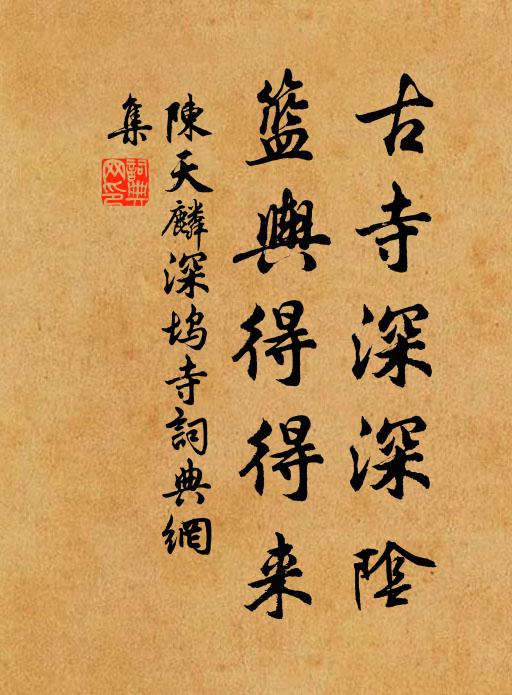 古寺深深陰
籃輿得得来
陳天麟深塢寺詞典網
集
詞典
网印